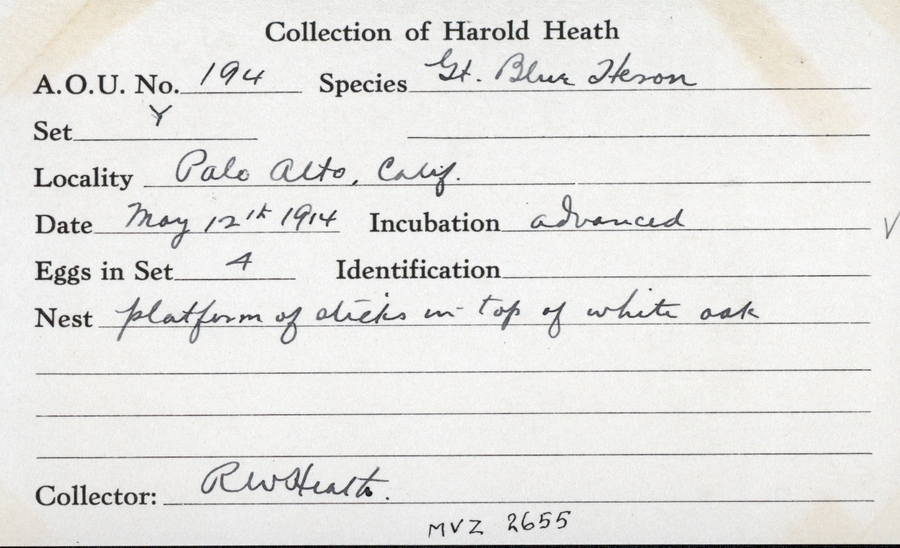 Collection of Harold Heath
A.O.U. No. 194 Species Gt. Blue Heron
Set Y
Locality Palo Alto, Calif.
Date May 12th 1914 Incubation advanced
Eggs in Set 4 Identification
Nest platform of sticks in top of white oak
Collector: RWHeath.
MVZ 2655